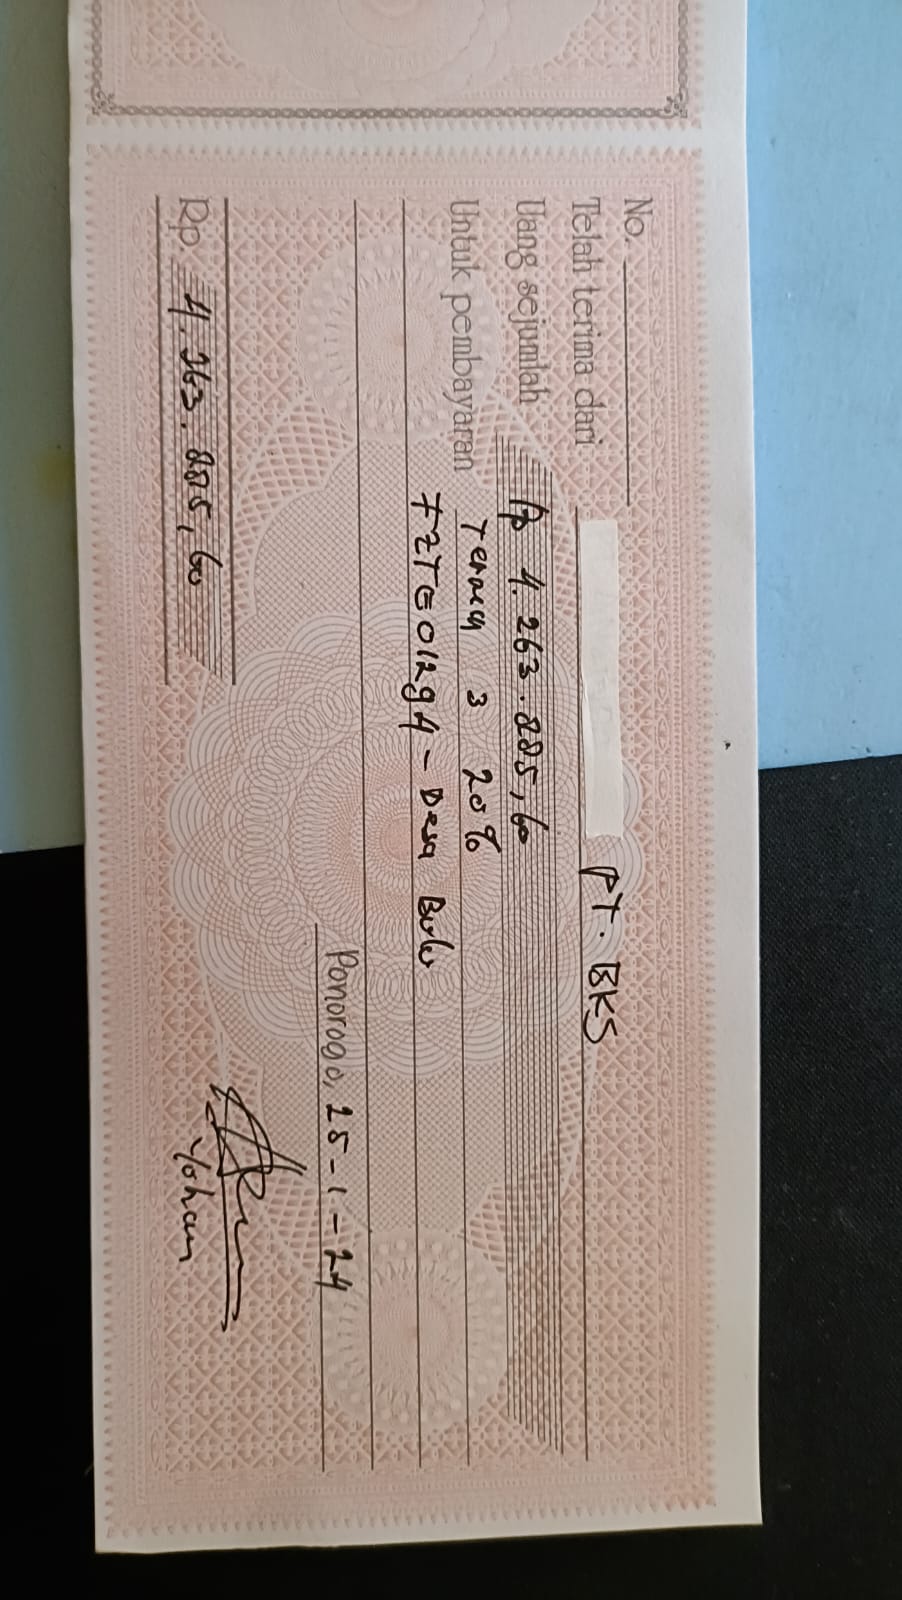 No.
Telah terima dari PT. BKS
Uang sejumlah Rp 4.263.885,60
Untuk pembayaran Termin 3 20%
FZTE01294 - Desa Bulu
Ponorogo, 25-1-24
Rp. 4.263.885,60
Yohan